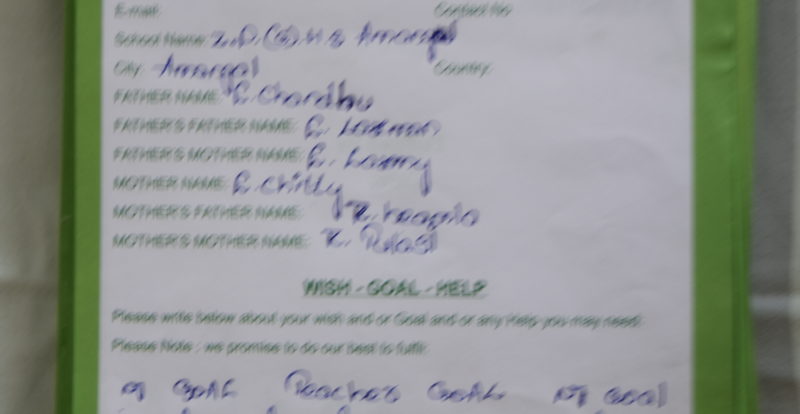 E-mail: Contact No
School Name: Z.P.(G).H.S Amangal
City: Amangal Country:
FATHER NAME: R. Chandhu
FATHER'S FATHER NAME: R. Laxman
FATHER'S MOTHER NAME: R. Laxmy
MOTHER NAME: R. Chitty
MOTHER'S FATHER NAME: K.
MOTHER'S MOTHER NAME: K.
WISH - GOAL - HELP
Please write below about your wish and or Goal and or any Help you may need:
Please Note : we promise to do our best to fulfill:
GOAL Teacher GOAL my Goal